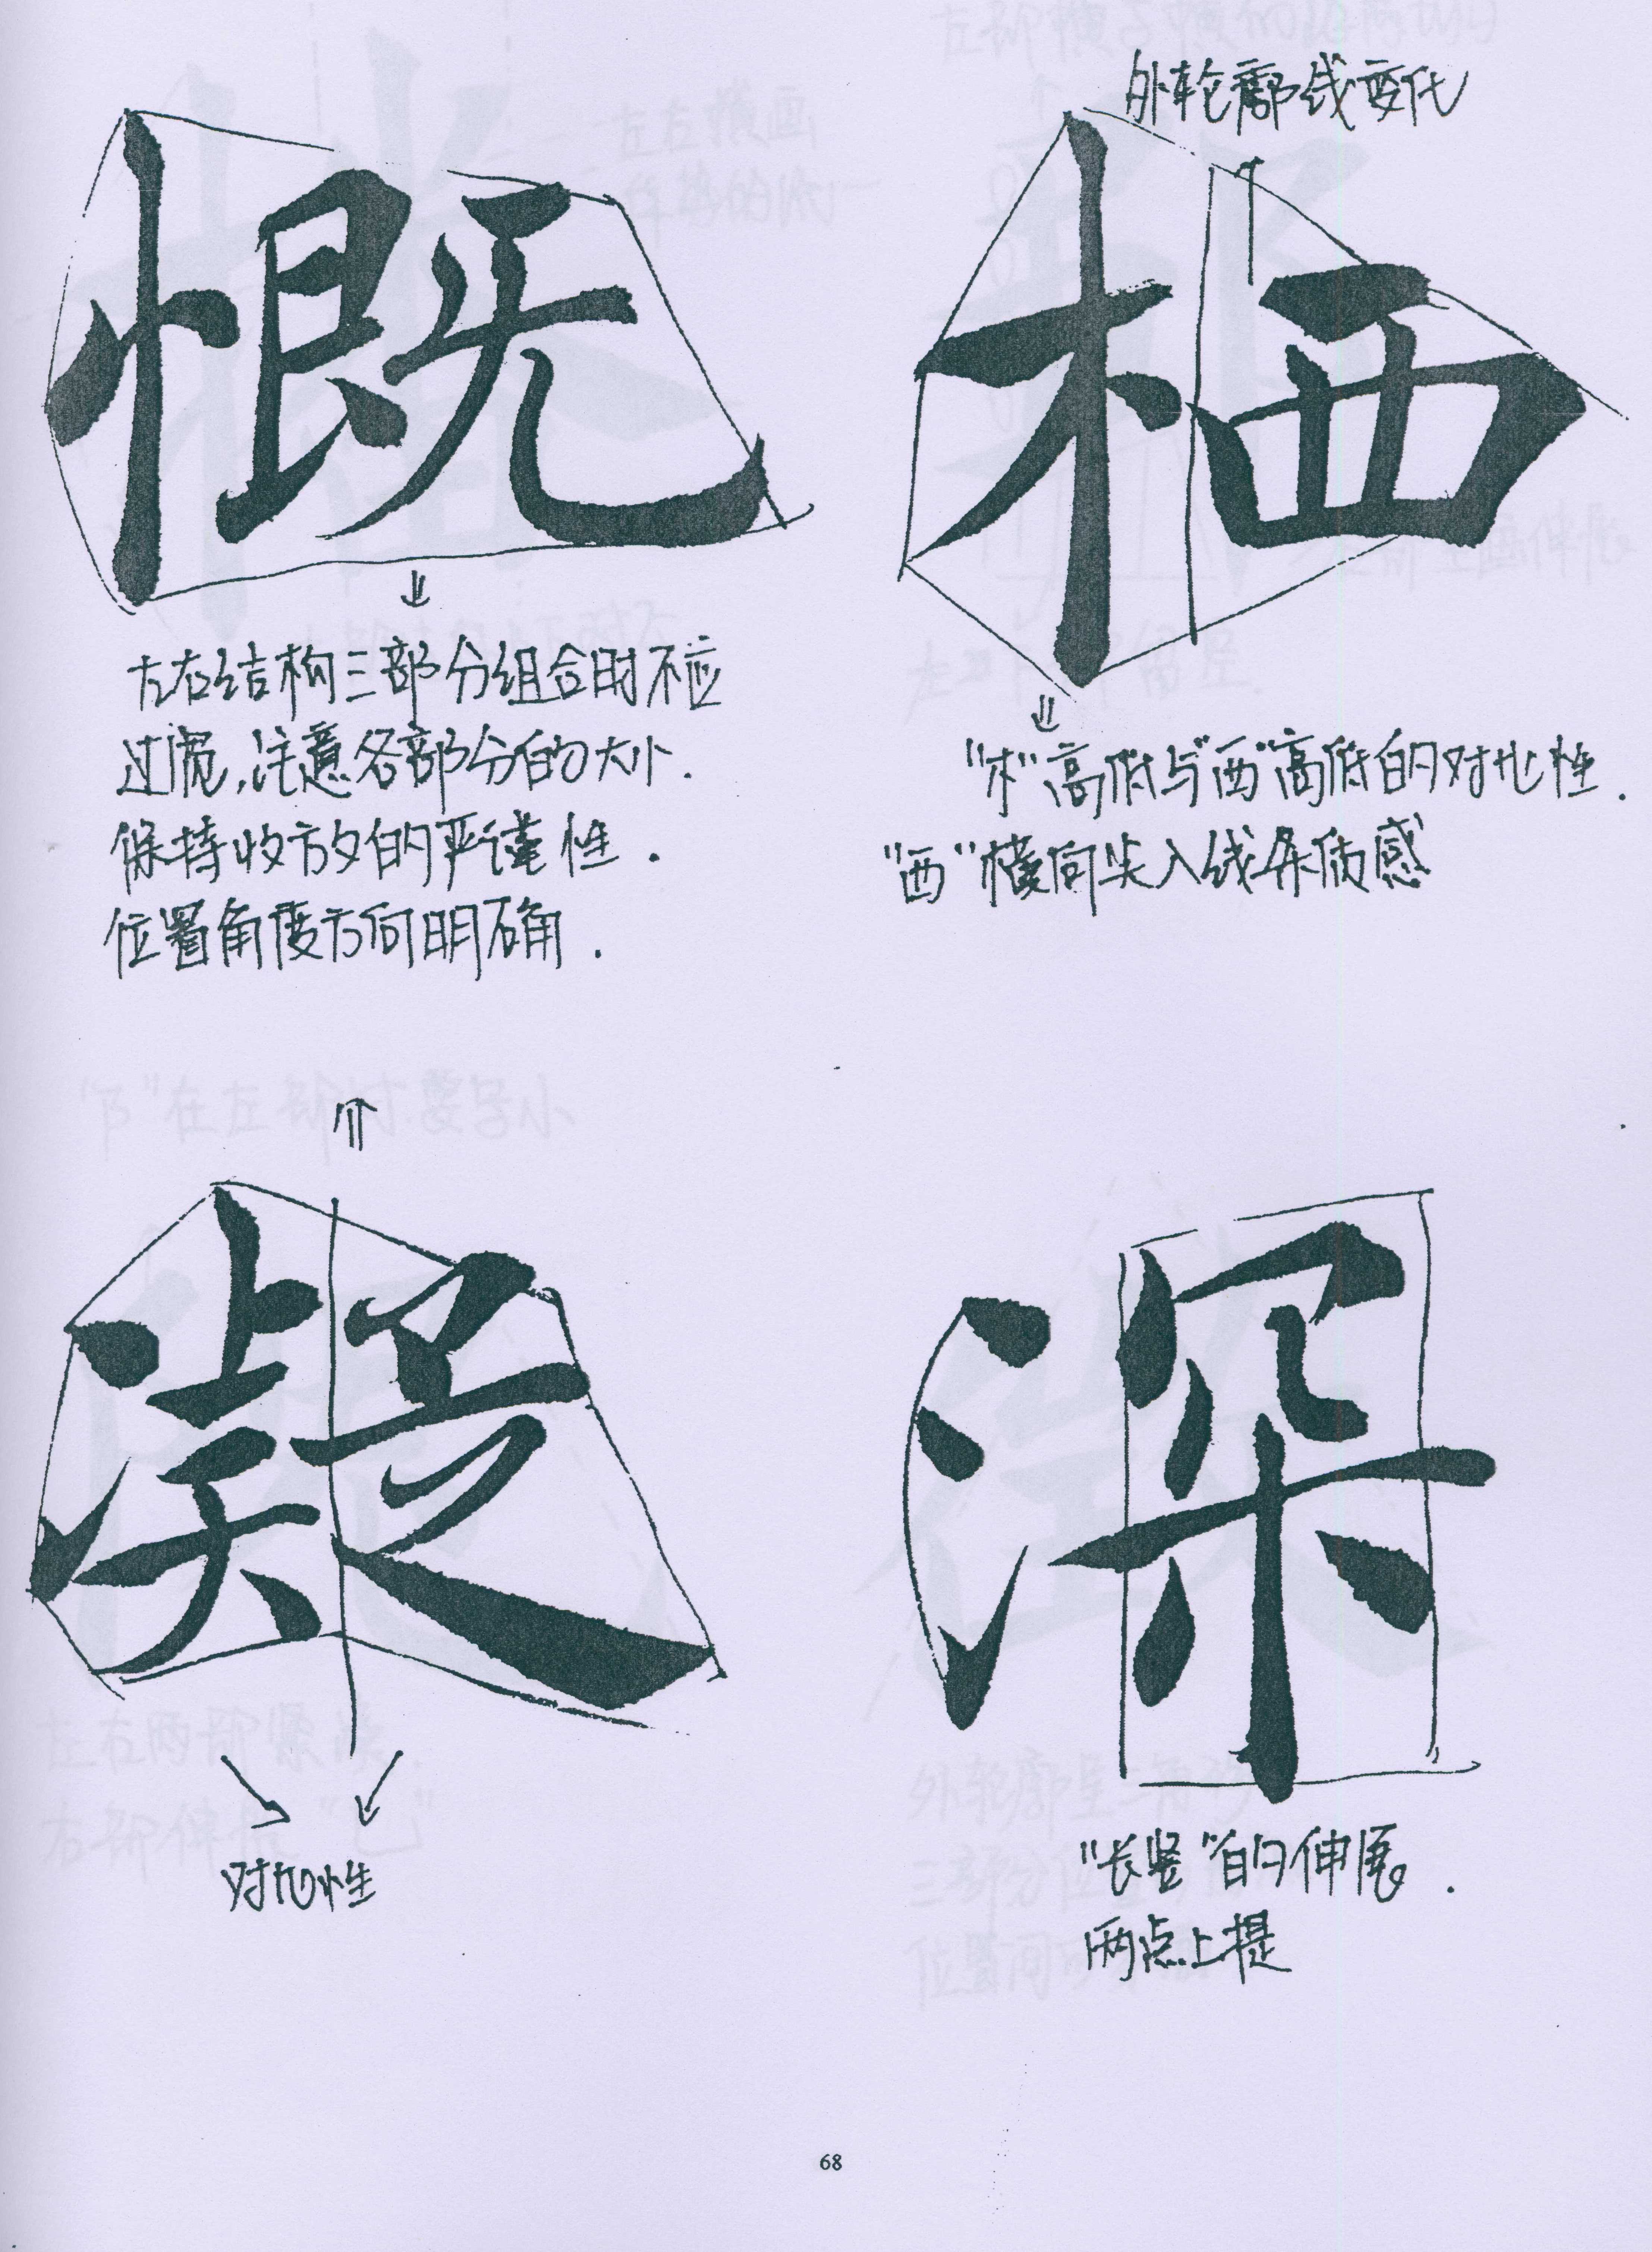 外轮廓线变化
慨
栖
左右结构三部分组合时不应
过宽,注意各部分的大小.
保持收放的严谨性.
位置角度方向明确.
"木"高低与"西"高低的对比性.
"西"横向尖入线条质感
凝
深
对比性
"长竖"的伸展.
两点上提
68